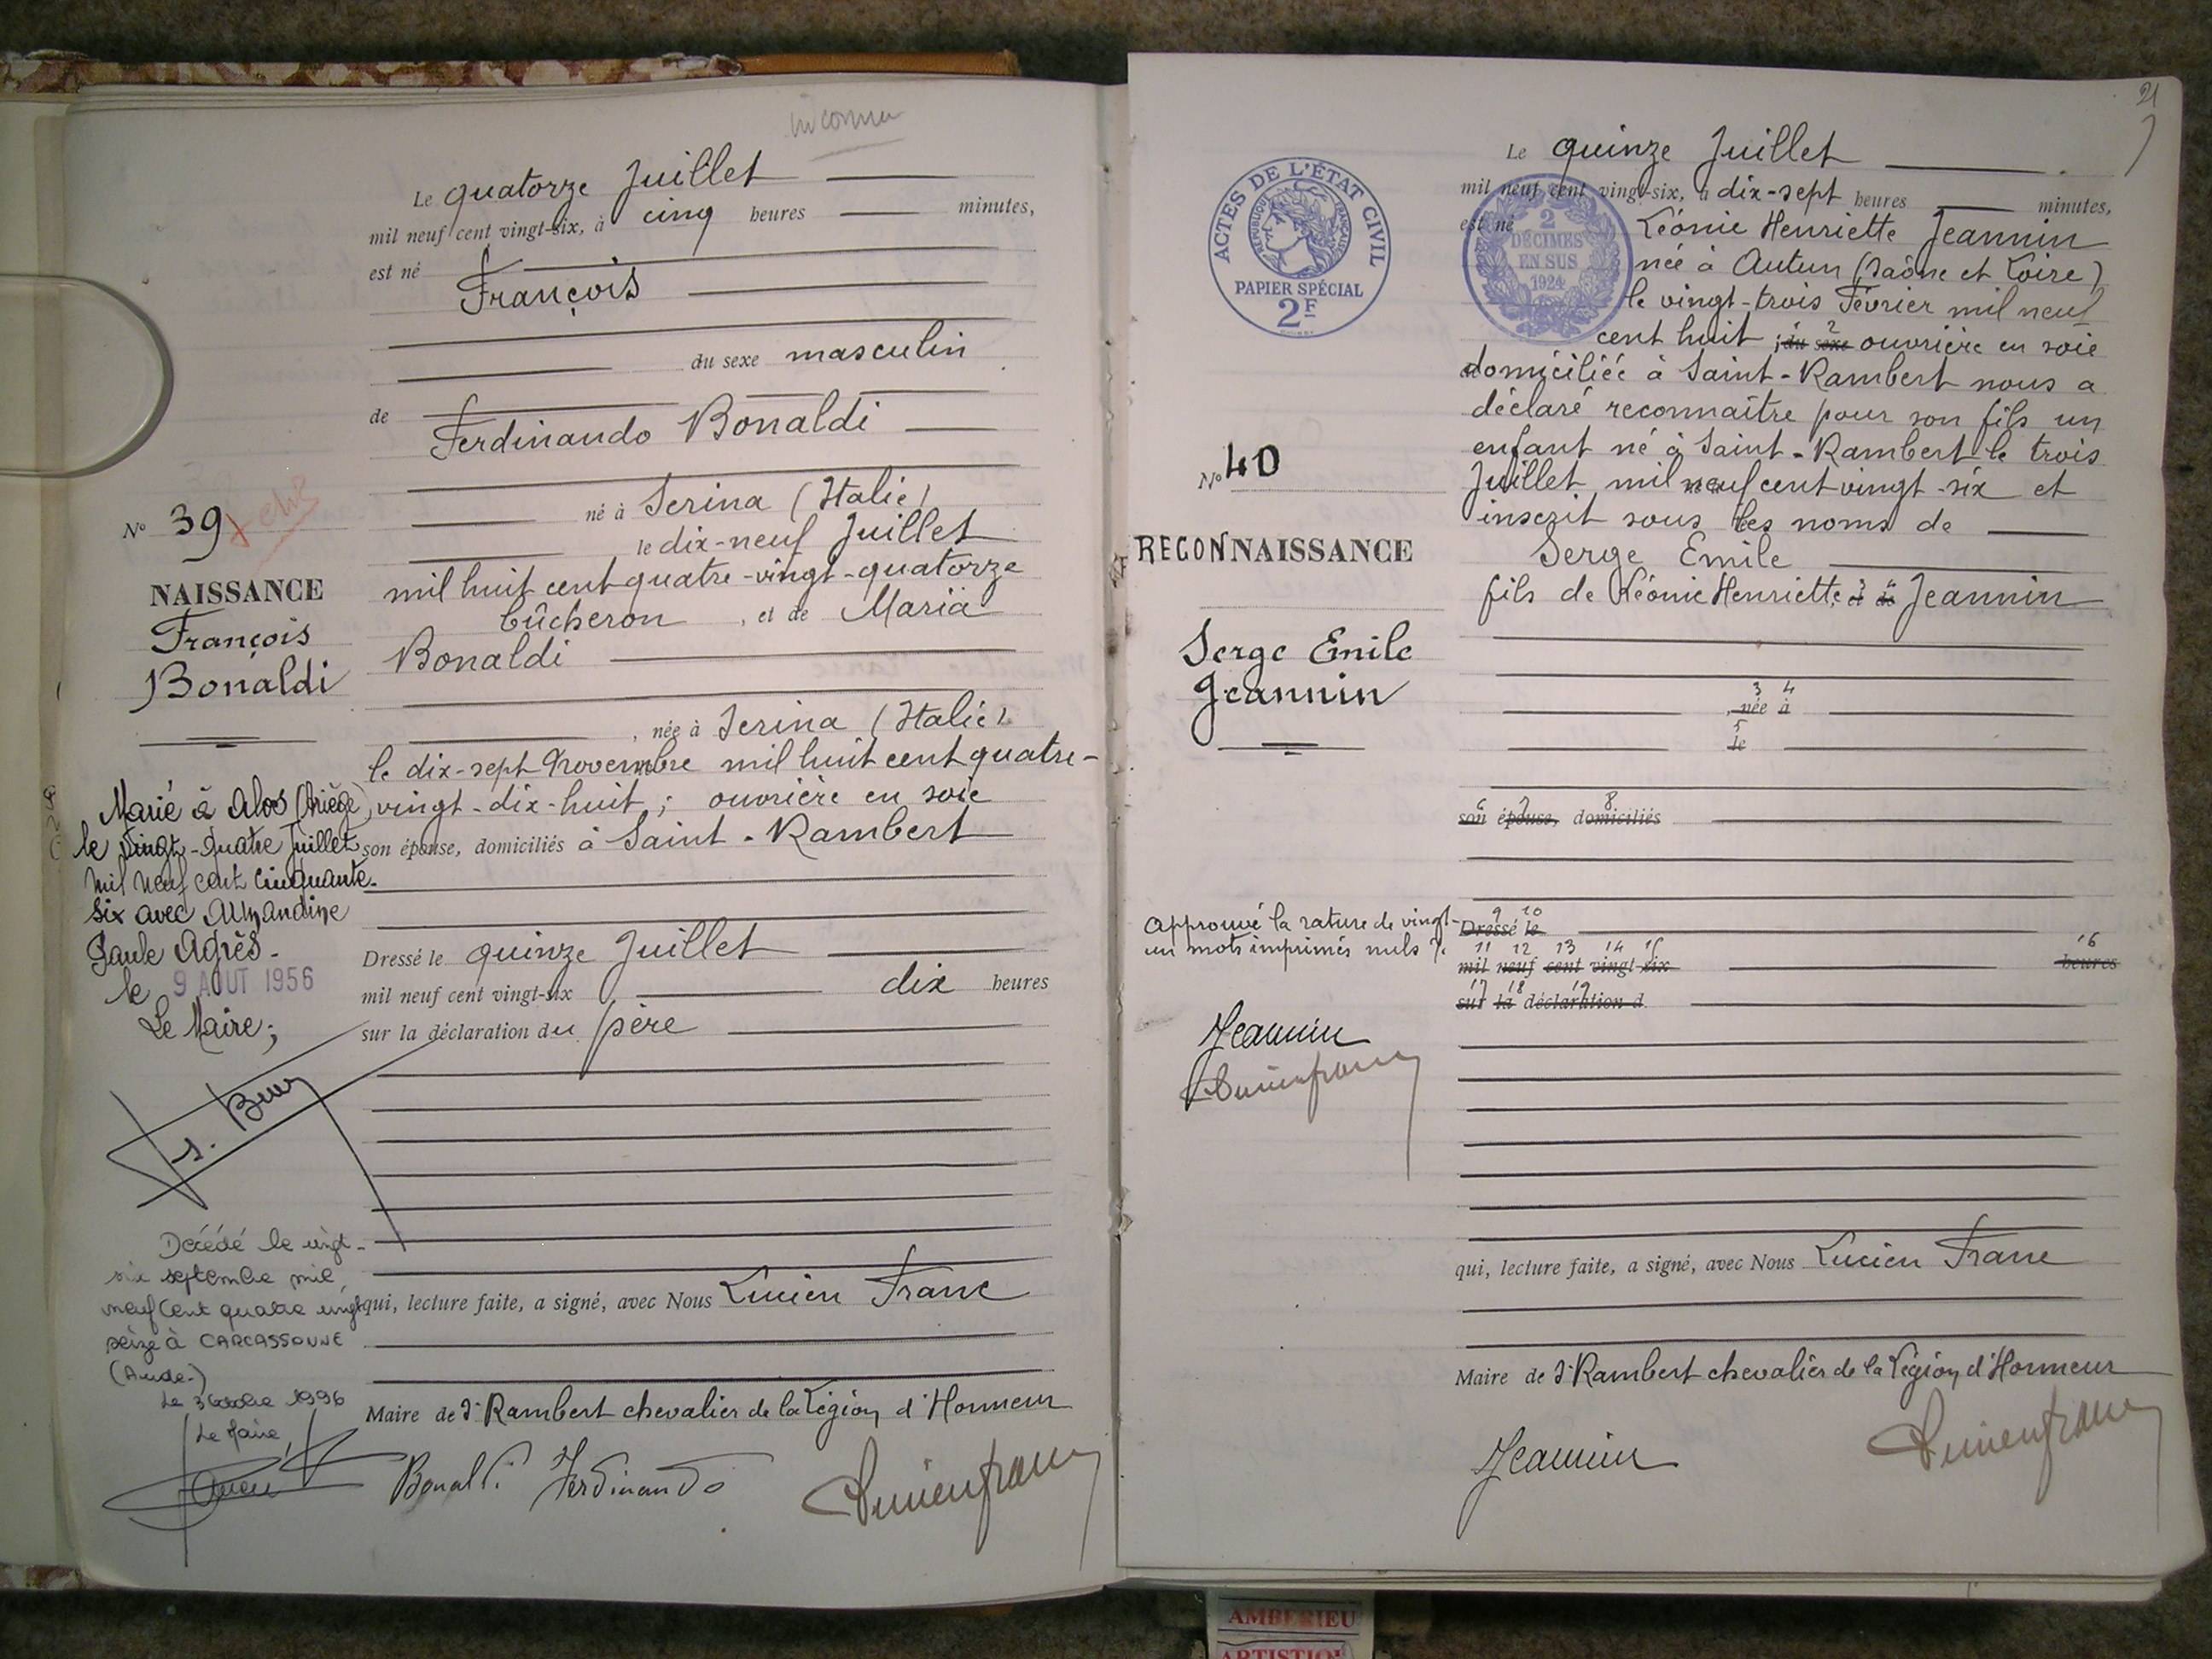 inconnu
Le quatorze Juillet
mil neuf cent vingt-six, à cinq heures minutes,
est né
François
du sexe masculin
de
Ferdinando Bonaldi
né à Serina (Italie)
le dix-neuf Juillet
mil huit cent quatre-vingt-quatorze
bûcheron , et de Maria
Bonaldi
, née à Serina (Italie)
le dix-sept Novembre mil huit cent quatre-
vingt-dix-huit ; ouvrière en soie
son épouse, domiciliés à Saint-Rambert
Dressé le quinze Juillet
mil neuf cent vingt-six dix heures
sur la déclaration du père
qui, lecture faite, a signé, avec Nous Lucien Franc
Maire de St Rambert chevalier de la Légion d'Honneur
Bonaldi Ferdinando Lucien franc
No 39
NAISSANCE
François
Bonaldi
Marié à Alos (Ariège)
le vingt-quatre Juillet
mil neuf cent cinquante-
six avec Amandine
Paule Agrès.
le 9 AOUT 1956
Le Maire;
Décédé le vingt-
six septembre mil
neuf cent quatre vingt
seize à CARCASSONNE
(Aude.)
Le 3 octobre 1996
Le Maire,
21
ACTES DE L'ÉTAT CIVIL
RÉPUBLIQUE FRANÇAISE
PAPIER SPÉCIAL
2F
2
DÉCIMES
EN SUS
1924
Le quinze Juillet
mil neuf cent vingt-six, à dix-sept heures minutes,
est né Léonie Henriette Jeannin
née à Autun (Saône et Loire)
le vingt-trois Février mil neuf
cent huit ; du sexe 2 ouvrière en soie
domiciliée à Saint-Rambert nous a
déclaré reconnaître pour son fils un
enfant né à Saint-Rambert le trois
Juillet mil neuf cent vingt-six et
inscrit sous les noms de
Serge Emile
fils de Léonie Henriette et de Jeannin
3 4
, née à
5
le
6 7 8
son épouse, domiciliés
9 10
Dressé le
11 12 13 14 15 16
mil neuf cent vingt-six heures
17 18 19
sur la déclaration d
qui, lecture faite, a signé, avec Nous Lucien Franc
Maire de St Rambert chevalier de la Légion d'Honneur
Jeannin Lucien franc
No 40
RECONNAISSANCE
Serge Emile
Jeannin
Approuvé la rature de vingt-
un mots imprimés nuls
Jeannin
Lucien franc
AMBERIEU
ARTISTIQ